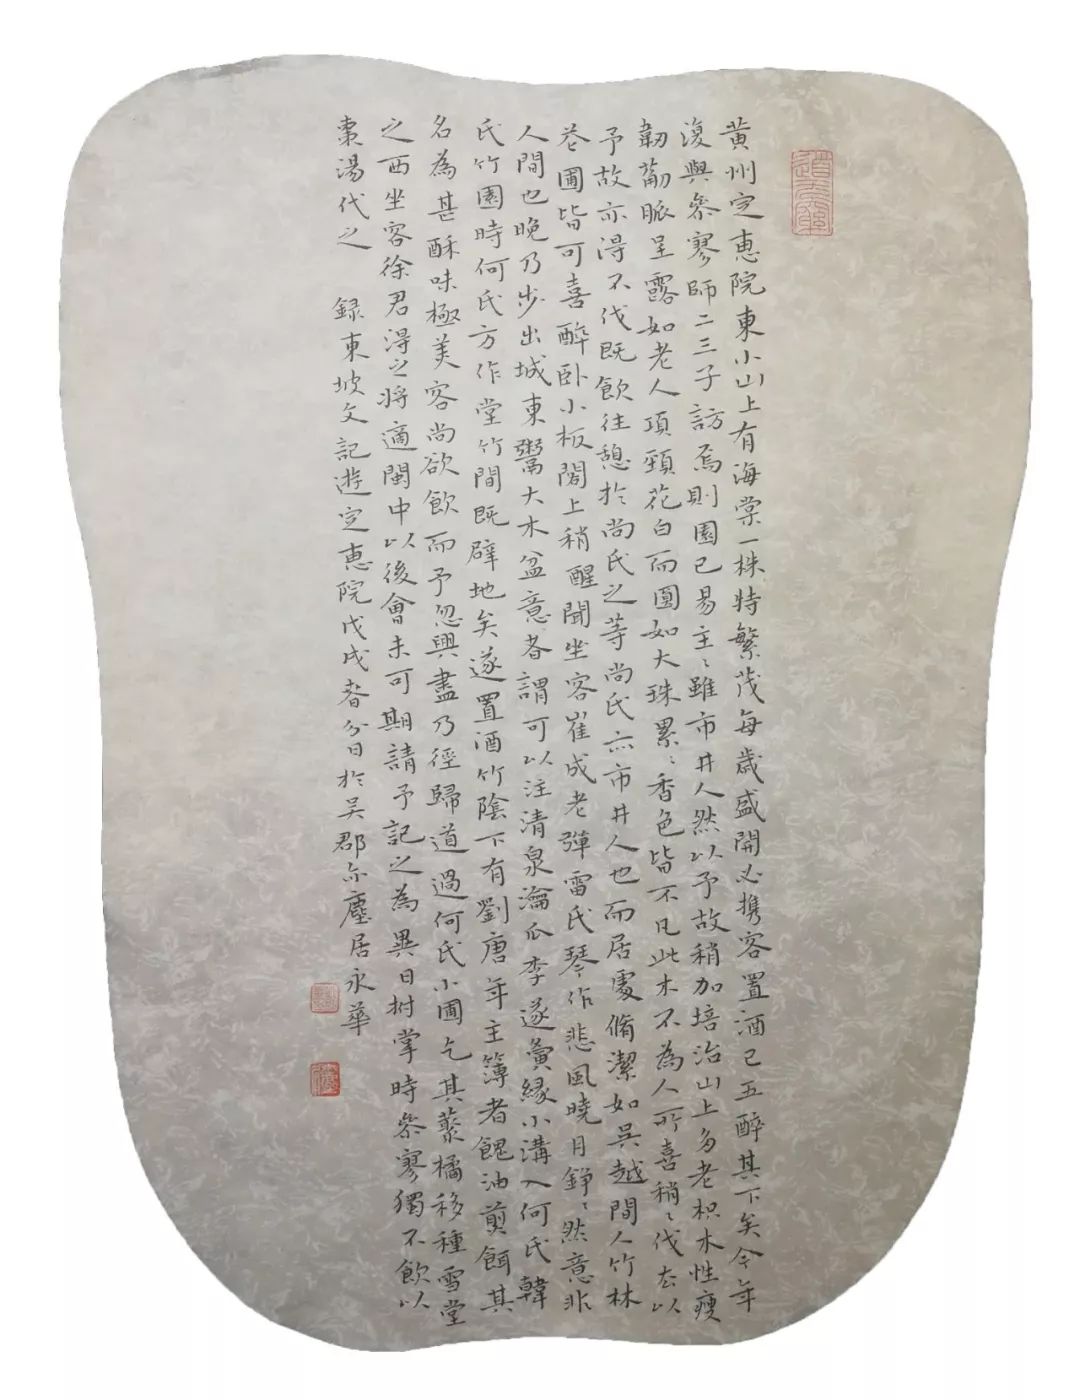 黄州定惠院東小山上有海棠一株特繁茂每歲盛開必携客置酒已五醉其下矣今年
復與參寥師二三子訪焉則園已易主〻雖市井人然以予故稍加培治山上多老枳木性瘦
韌葡脈呈露如老人項頸花白而圓如大珠累〻香色皆不凡此木不為人所喜稍〻伐去以
予故亦得不伐既飲往憩於尚氏之苐尚氏亦市井人也而居處脩潔如吳越間人竹林
花圃皆可喜醉卧小板閣上稍醒聞坐客崔成老彈雷氏琴作悲風曉月錚〻然意非
人間也晚乃步出城東鬻大木盆意者謂可以注清泉瀹瓜李遂夤緣小溝入何氏韓
氏竹園時何氏方作堂竹間既辟地矣遂置酒竹陰下有劉唐年主簿者餽油煎餌其
名為甚酥味極美客尚欲飲而予忽興盡乃徑歸道過何氏小圃乞其藂橘移種雪堂
之西坐客徐君得之將適閩中以後會未可期請予記之為異日拊掌時參寥獨不飲以
棗湯代之 録東坡文記遊定惠院戊戌春分日於吳郡亦塵居永華